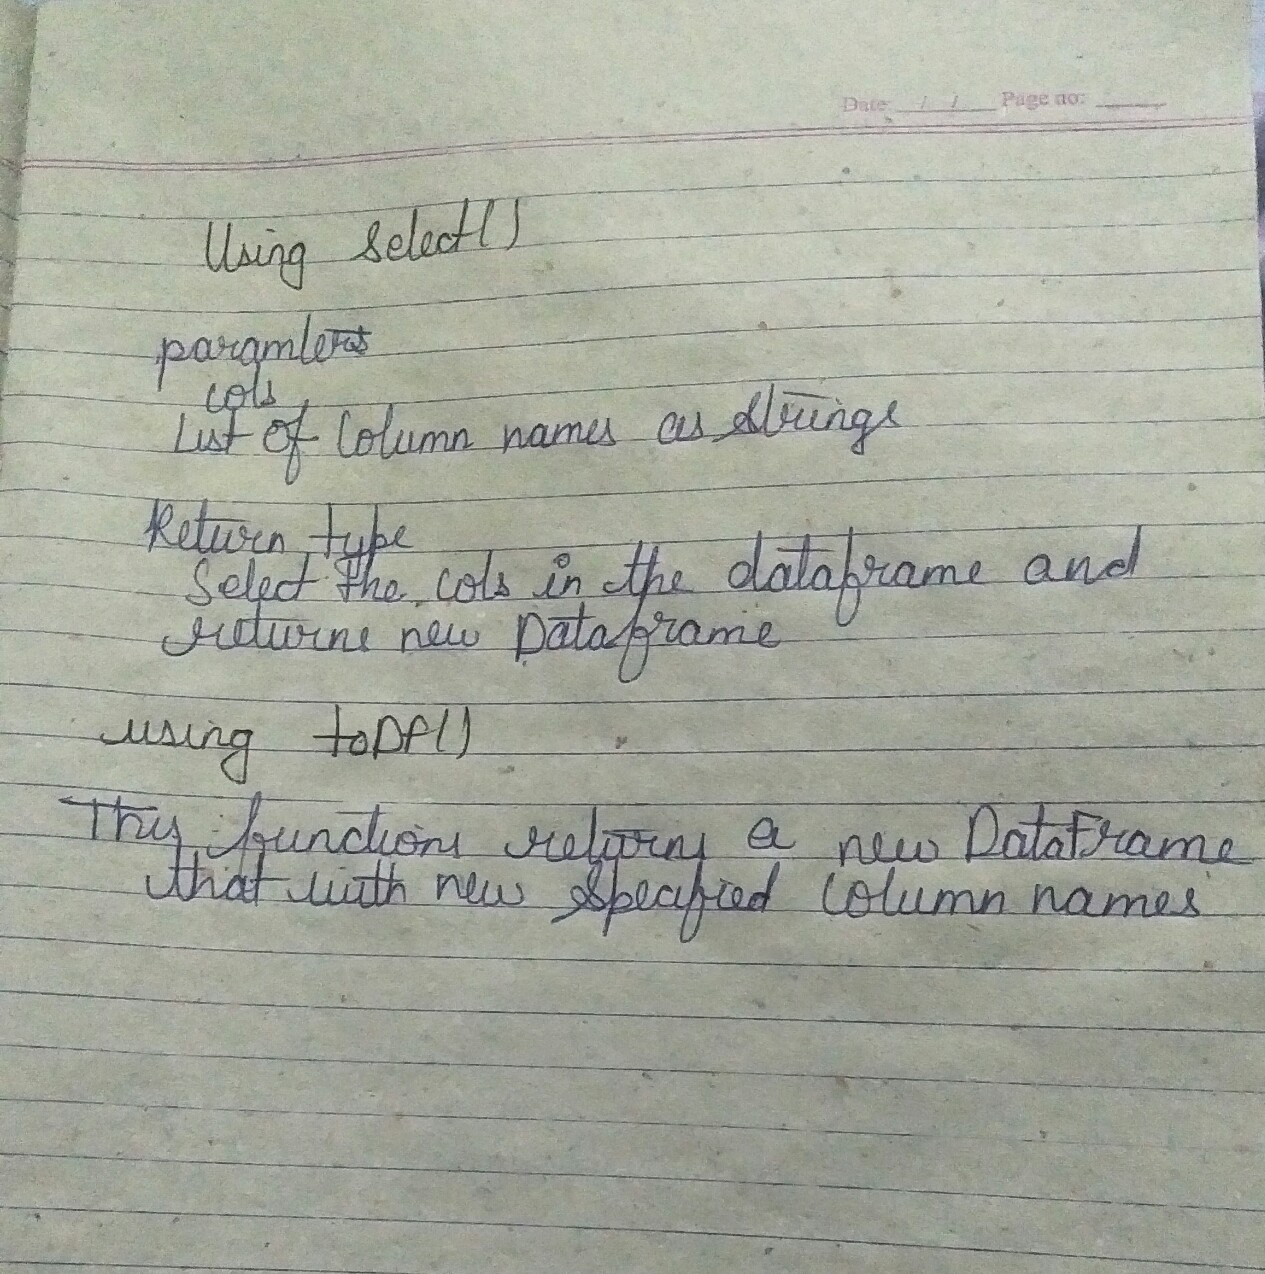 Date: / / Page no:
Using Select()
paramters
cols
List of Column names as strings
Return type
Select the cols in the dataframe and
returns new Dataframe
using toDF()
This function returns a new DataFrame
that with new specified Column names